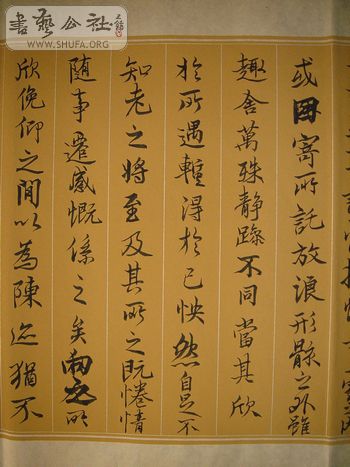 書藝公社
WWW.SHUFA.ORG
或因寄所託放浪形骸之外雖
趣舍萬殊靜躁不同當其欣
於所遇蹔得於己怏然自足不
知老之將至及其所之既惓情
随事遷感慨係之矣向之所
欣俛仰之閒以為陳迹猶不